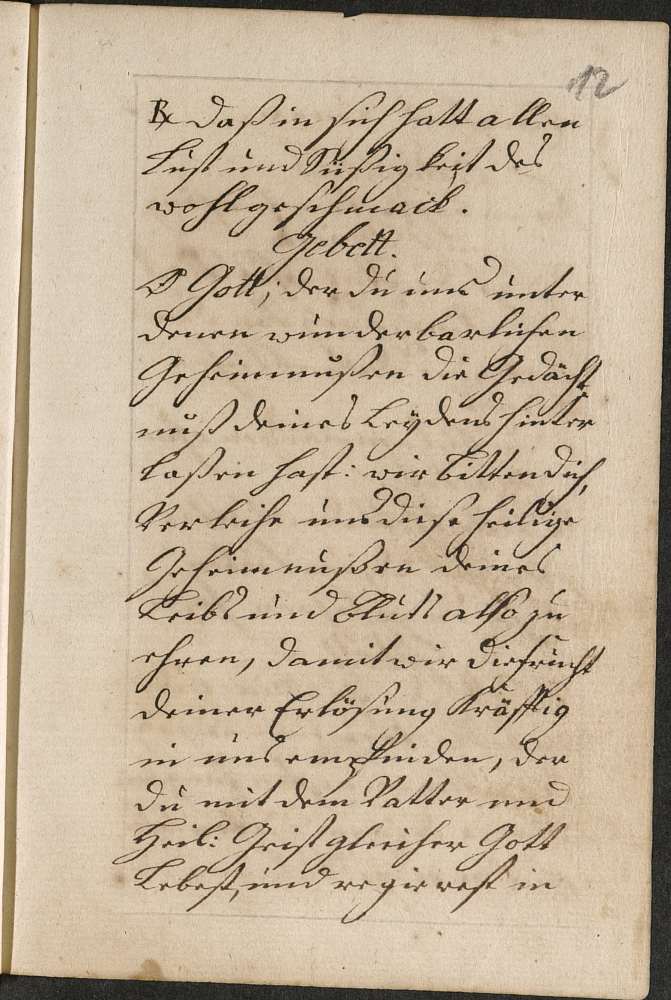 12
℟ Daß in sich hatt allen
Lust und Süßigkeit des
wohlgeschmack.
Gebett.
O Gott, der du uns unter
denen wunderbarlichen
Geheimnußen die Gedächt
nuß deines Leydens hinter
laßen hast: wir bitten dich,
Verleihe uns diese heilige
Geheimnußen deines
Leibs und Bluts also zu
ehren, damit wir die frucht
deiner Erlösung Kräfftig
in uns empfinden, der
du mit dem Vatter und
Heil: Geist gleicher Gott
Lebest, und regierest in